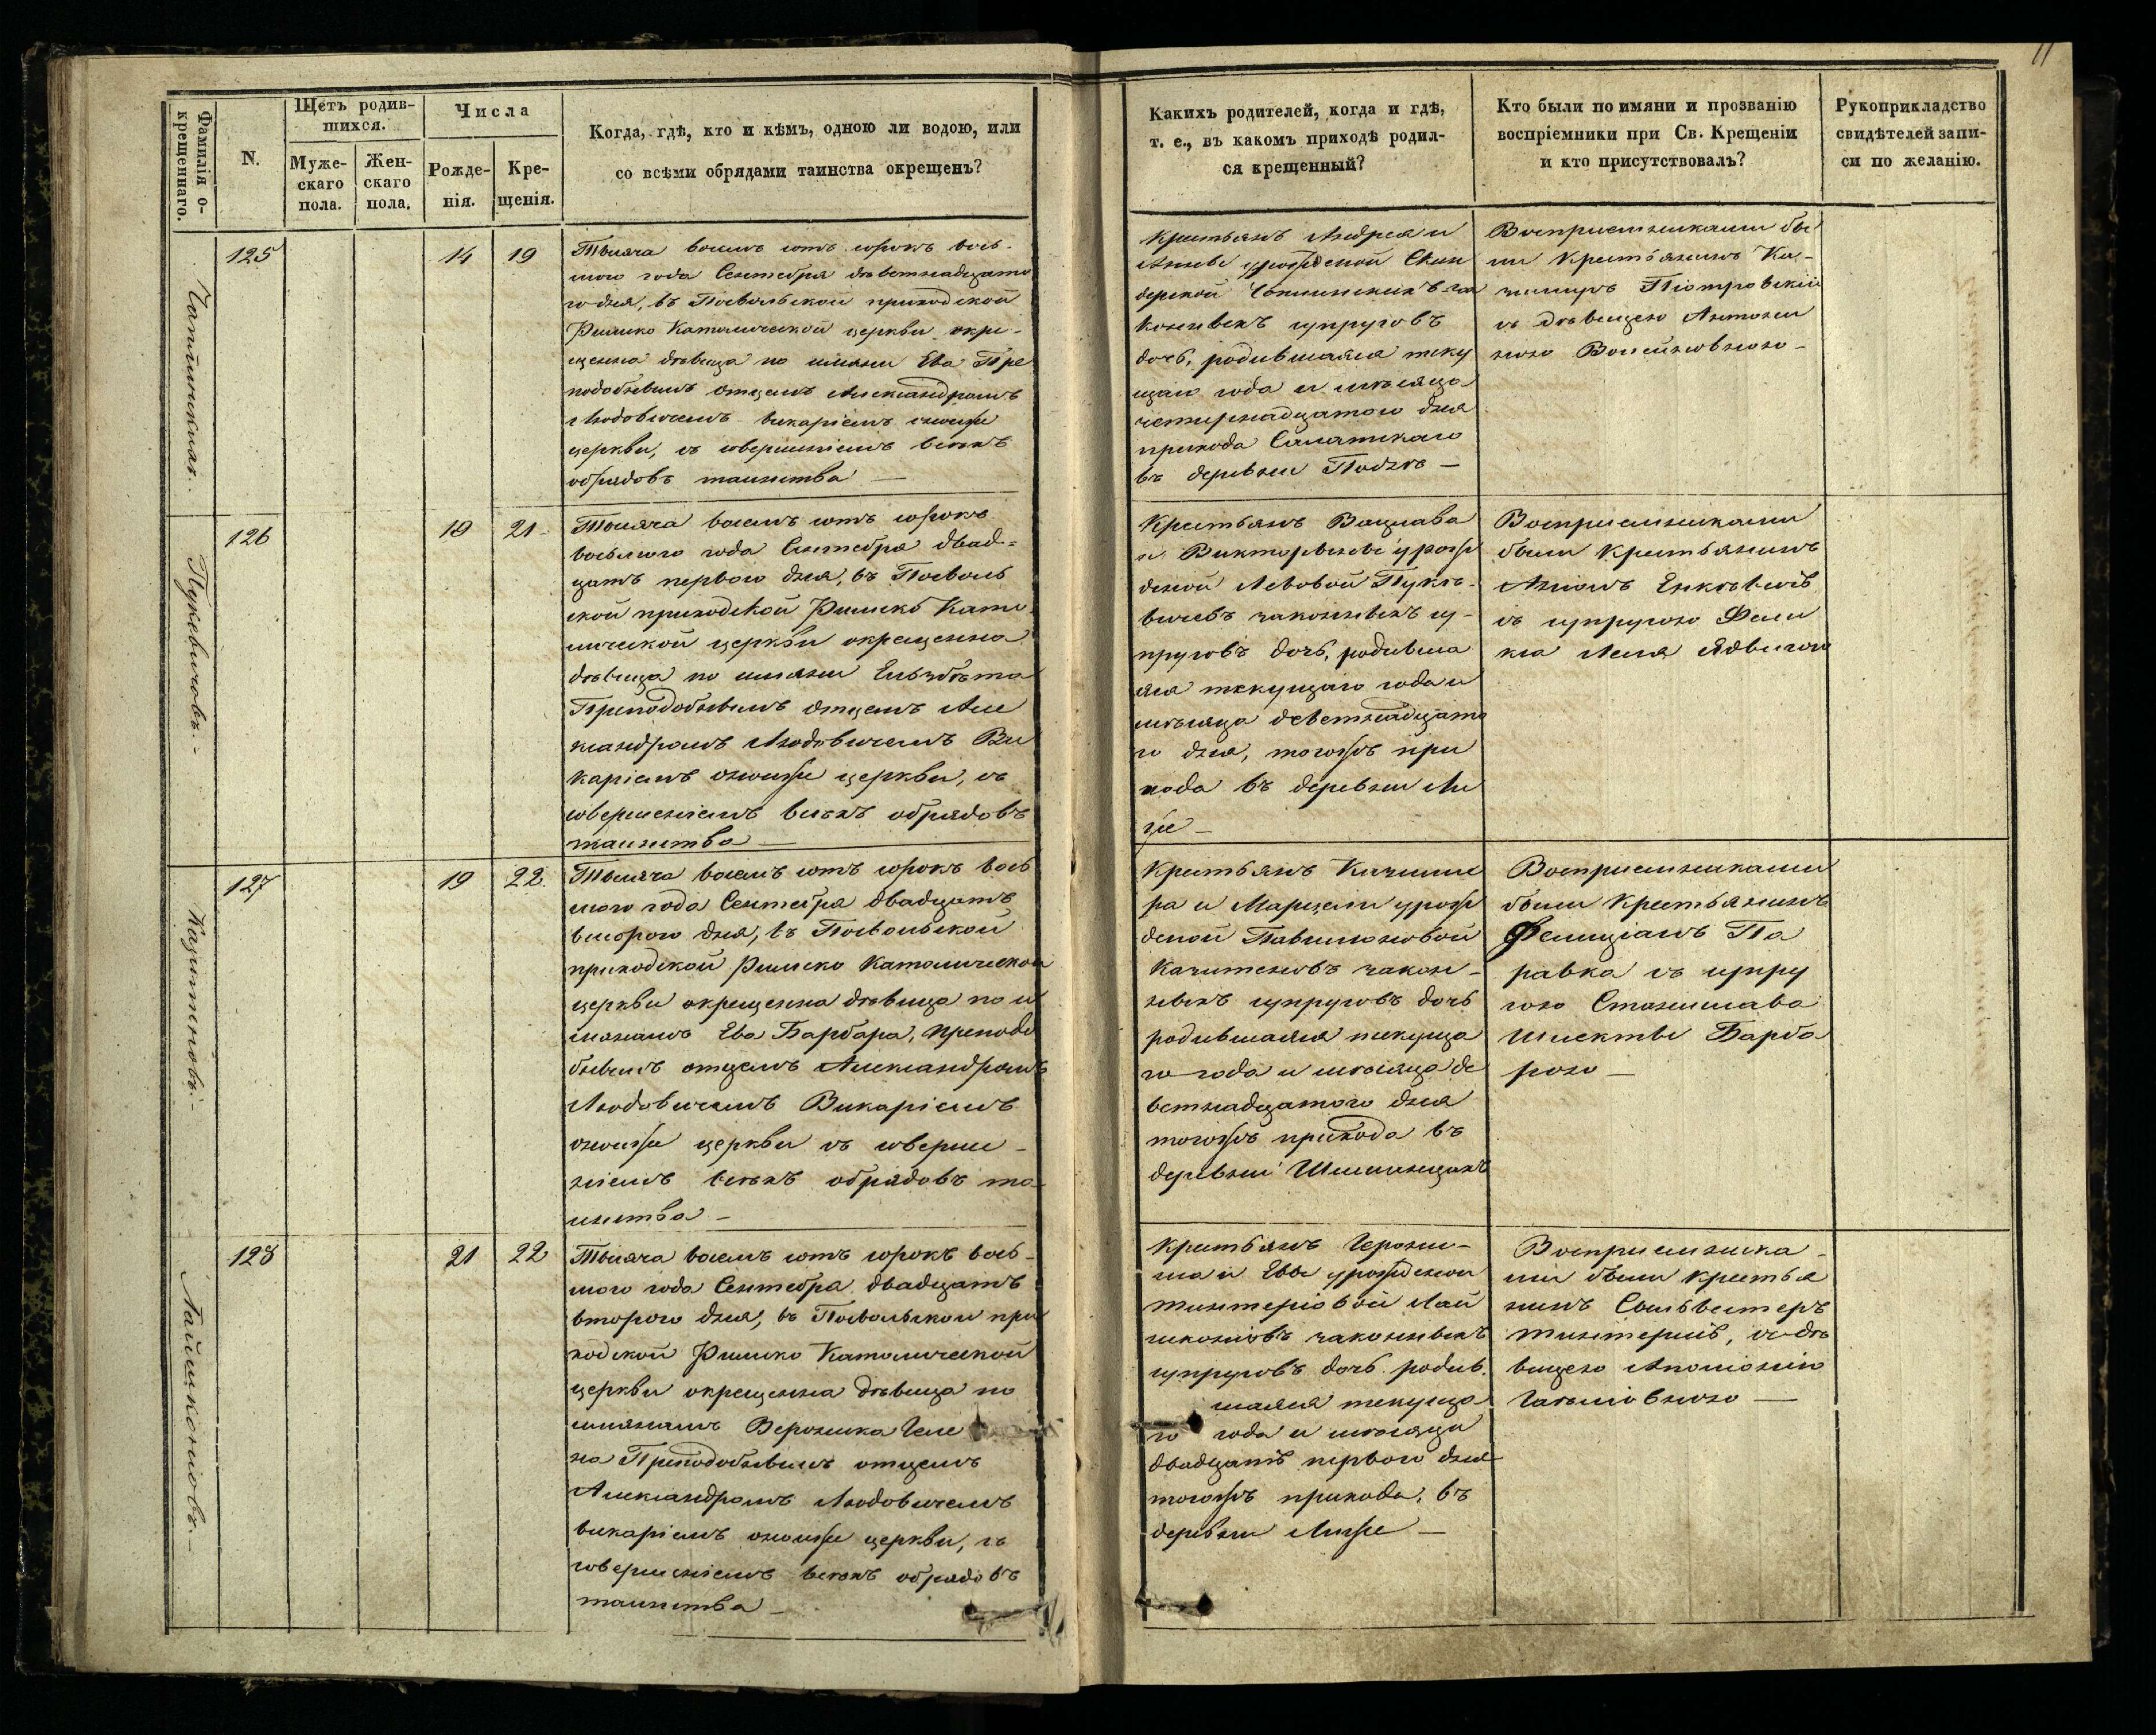 11
Фамилія о-
крещеннаго.
N.
Щетъ родив-
шихся.
Муже-
скаго
пола.
Жен-
скаго
пола.
Числа
Рожде-
нія.
Кре-
щенія.
Когда, гдѣ, кто и кѣмъ, одною ли водою, или
со всѣми обрядами таинства окрещенъ?
Каких​ъ родителей, когда и гдѣ,
т. е., въ какомъ приходѣ родил-
ся крещенный?
Кто были по имяни и прозванію
воспріемники при Св. Крещеніи
и кто присутствовалъ?
Рукоприкладство
свидѣтелей запи-
си по желанію.
125
14
19
Тысяча восемъ сотъ сорокъ вось-
мого года Сентебря деветнадцато
го дня, въ Посвольской приходской
Римско Католической церкви окре-
щенна дѣвица по имяни Ева Пре
подобнымъ отцемъ Александромъ
Людовичемъ викаріемъ оноиже
церкви, съ совершеніемъ всѣхъ
обрядовъ таинства —
Крестьянъ Андрея и
Анны урожденой
супруговъ
дочь, родившаяся теку
щаго года и мѣсяца
четырнадцатого дня
прихода Салатскаго
въ деревни
Восприемниками бы
ли Крестьянинъ Ка-
зимиръ Піотровскій
съ дѣвицею Антони
ною
126
Пукевичовъ. -
19
21 -
Тысяча восемъ сотъ сорокъ
восьмого года Сентебря двад=
цать первого дня, въ Посволь
ской приходской Римско Като
лической церкви окрещенна
дѣвица по имяни Ельзбѣта
Преподобнымъ отцемъ Але
ксандромъ Людовичемъ Ви
каріемъ оноиже церкви, съ
совершеніемъ всѣхъ обрядовъ
таинства —
Крестьянъ Вацлава
и Викторыны урож
деной Левовой Пукѣ-
вичевъ законныхъ су-
пруговъ дочь, родивша
яся текущаго года и
мѣсяца деветнадцато
го дня, тогожъ при
хода въ деревни Ли
же —
Восприемниками
были Крестьянинъ
съ супругою Фели
кса Леля Ядвигою
127
Казитеновъ. -
19
22.
Тысяча восемъ сотъ сорокъ вось
мого года Сентебря двадцать
второго дня, въ Посвольской
приходской Римско Католической
церкви окрещенна дѣвица по и
мянамъ Ева Барбара, Преподо
бнымъ отцемъ Александромъ
Людовичемъ Викаріемъ
оноиже церкви съ соверше-
ніемъ всѣхъ обрядовъ та
инства —
Крестьянъ Казиме
ра и Марцели урож
деной Павилоновой
Казитеновъ закон-
ныхъ супруговъ дочь
родившаяся текуща
го года и мѣсяца де
ветнадцатого дня
тогожъ прихода въ
деревни
Восприемниками
были Крестьянинъ
Фелиціанъ Па
равка съ супру
гою Станислава
Барба
рою —
128
Лайшконіовъ. -
21
22
Тысяча восемъ сотъ сорокъ вось-
мого года Сентебря двадцать
второго дня, въ Посвольской при
ходской Римско Католической
церкви окрещенна дѣвица по
имянамъ Вероника Геле
на Преподобнымъ отцемъ
Александромъ Людовичемъ
викаріемъ оноиже церкви, съ
совершеніемъ всѣхъ обрядовъ
таинства —
Крестьянъ Герони-
ма и Евы урожденой
Тинтеріовой Лай
шконіовъ законныхъ
супруговъ дочь родив.
шаяся текуща
го года и мѣсяца
двадцать первого дня
тогожъ прихода, въ
деревни Лиже —
Восприемника-
ми были Крестья
нинъ Сильвестеръ
Тинтерисъ, съ дѣ
вицею Аполіоніею